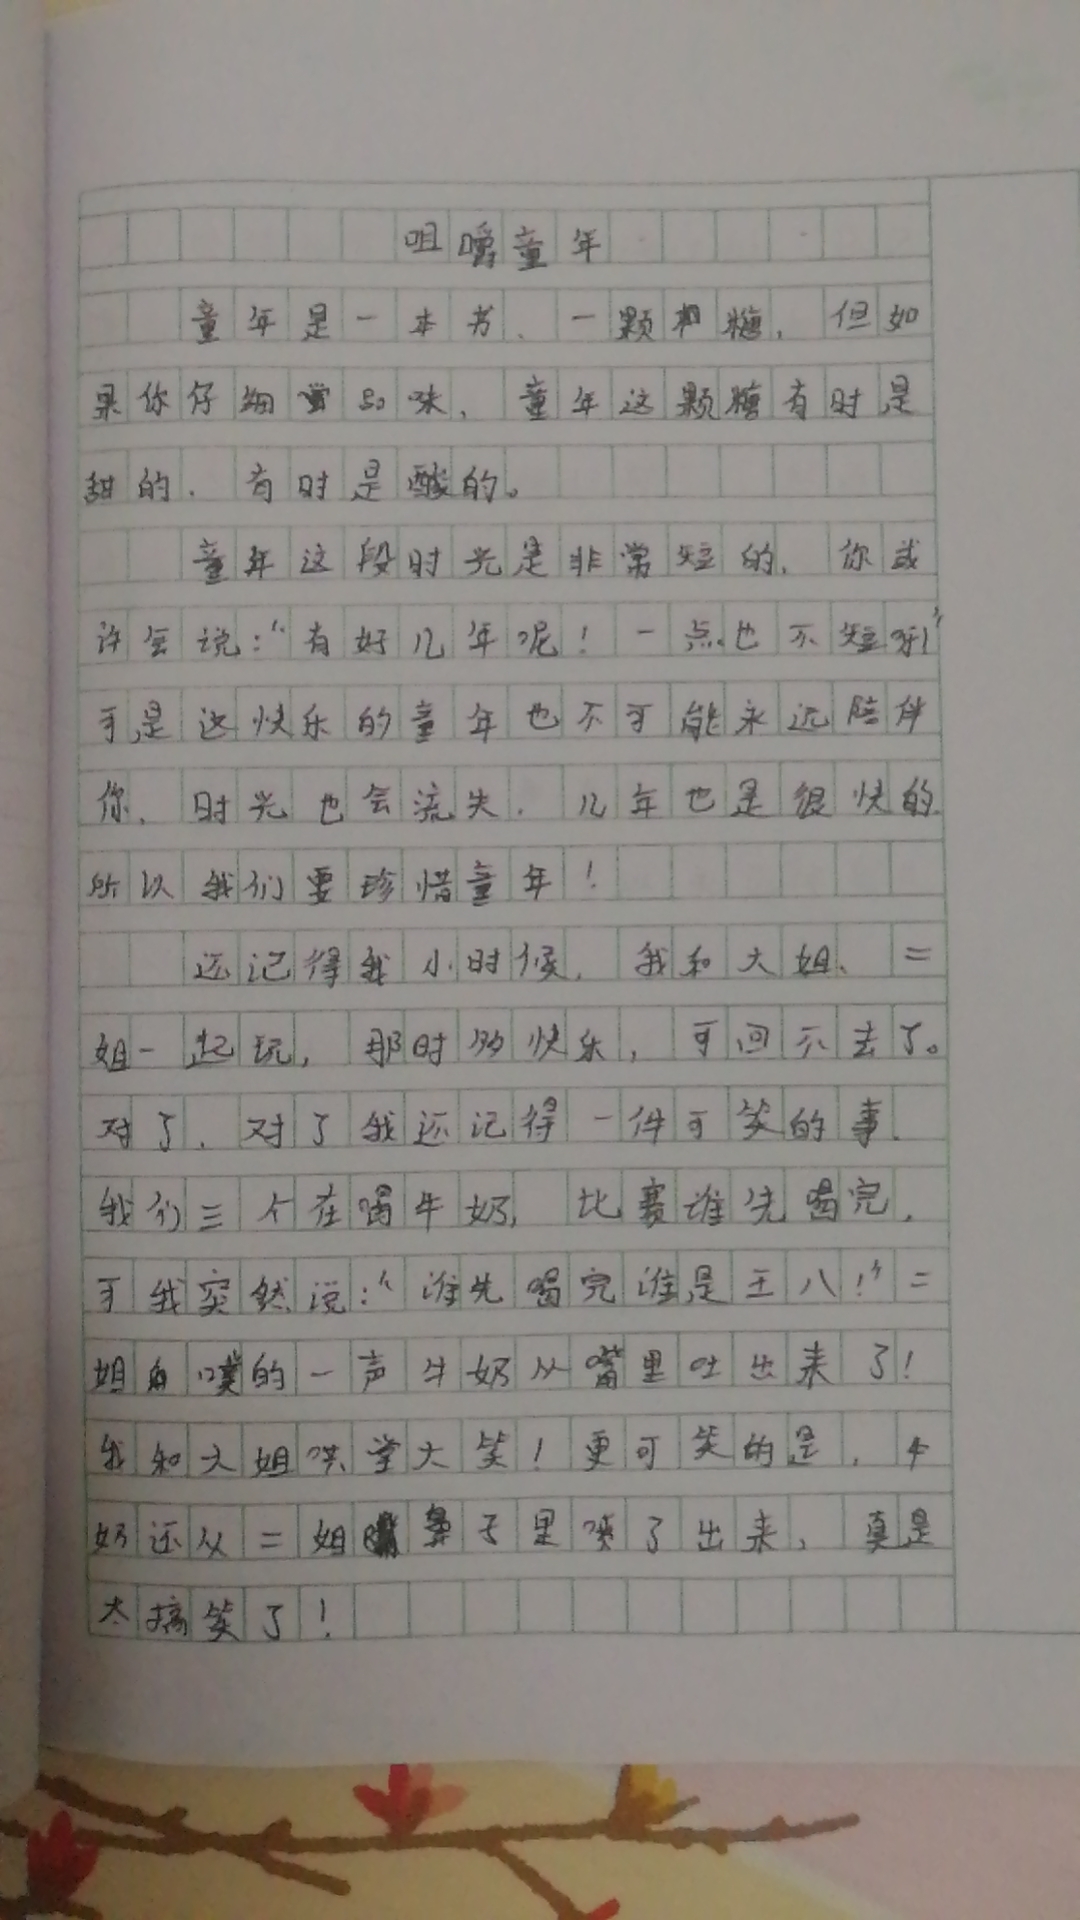 咀嚼童年
童年是一本书、一颗糖,但如
果你仔细品味,童年这颗糖有时是
甜的,有时是酸的。
童年这段时光是非常短的,你或
许会说:“有好几年呢!一点也不短呀!”
可是这快乐的童年也不可能永远陪伴
你,时光也会流失,几年也是很快的.
所以我们要珍惜童年!
还记得我小时候,我和大姐、二
姐一起玩,那时多快乐,可回不去了。
对了,对了我还记得一件可笑的事.
我们三个在喝牛奶,比赛谁先喝完,
可我突然说:“谁先喝完谁是王八!”二
姐噗的一声牛奶从嘴里吐出来了!
我和大姐哄堂大笑!更可笑的是,牛
奶还从二姐鼻子里喷了出来,真是
太搞笑了!